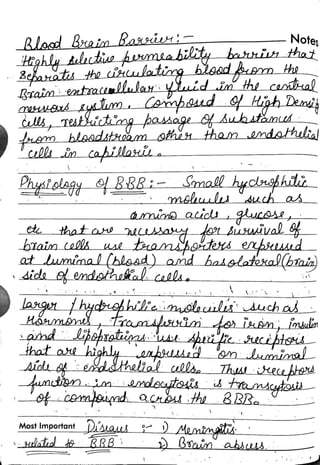 Blood Brain Barrier :-
Notes
Highly selective permeability barrier that
Separates the circulating blood from the
Brain extracellular fluid in the central
nervous system. Composed of High Density
Cells, restricting passage of substances
from bloodstream other than endothelial
cells in capillaries.
Physiology of BBB :- Small hydrophilic
molecules such as
amino acids, glucose,
etc that are necessary for survival of
brain cells use transporters expressed
at luminal (blood) and basolateral (brain)
side of endothelial cells.
Larger / hydrophilic molecules such as
Hormones, Transferrin for iron, insulin
and lipoproteins use specific receptors
that are highly expressed on luminal
side of endothelial cells. These receptors
function in endocytosis & transcytosis
of compound across the BBB.
Most Important Diseases :- 1) Meningitis
related to BBB 2) Brain abscess